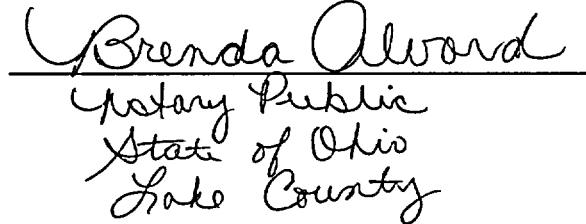 Brenda Alvord
Notary Public
State of Ohio
Lake County